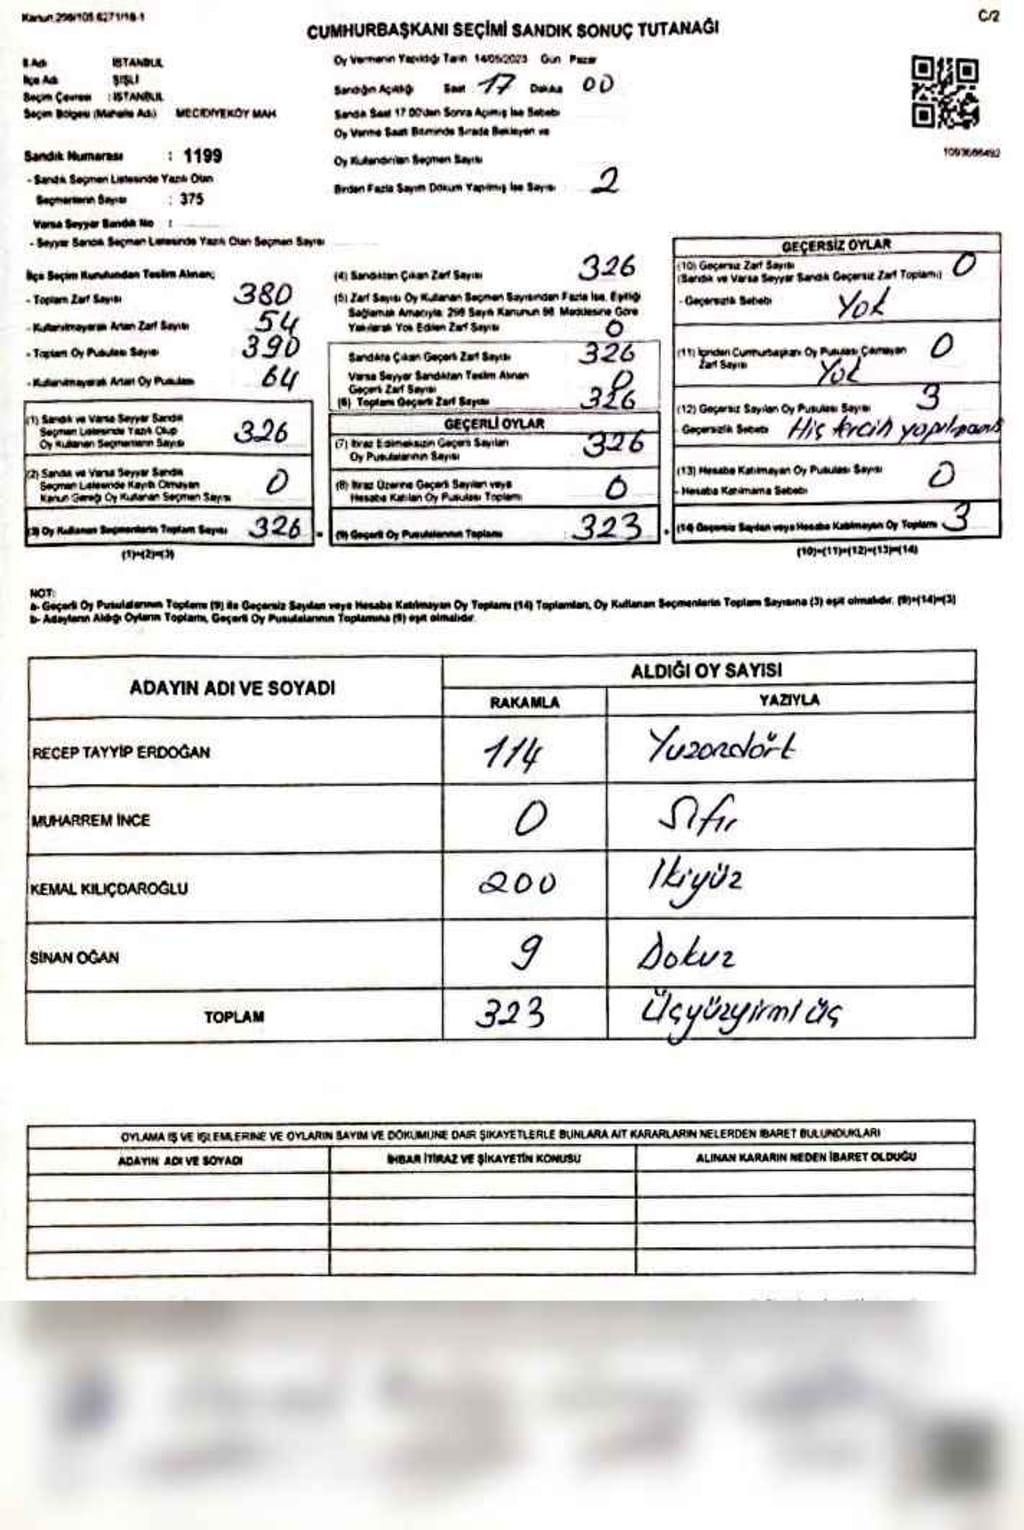 Kanun 298/105 6271/18-1
C/2
CUMHURBAŞKANI SEÇİMİ SANDIK SONUÇ TUTANAĞI
İl Adı : İSTANBUL
İlçe Adı : ŞİŞLİ
Seçim Çevresi : İSTANBUL
Seçim Bölgesi (Mahalle Adı) MECİDİYEKÖY MAH
Sandık Numarası : 1199
- Sandık Seçmen Listesinde Yazılı Olan
Seçmenlerin Sayısı : 375
Varsa Seyyar Sandık No :
- Seyyar Sandık Seçmen Listesinde Yazılı Olan Seçmen Sayısı
Oy Vermenin Yapıldığı Tarih 14/05/2023 Gün Pazar
Sandığın Açıldığı Saat 17 Dakika 00
Sandık Saat 17.00'den Sonra Açılmış İse Sebebi
Oy Verme Saati Bitiminde Sırada Bekleyen ve
Oy Kullandırılan Seçmen Sayısı
Birden Fazla Sayım Döküm Yapılmış İse Sayısı 2
1093686492
İlçe Seçim Kurulundan Teslim Alınan;
- Toplam Zarf Sayısı 380
- Kullanılmayarak Artan Zarf Sayısı 54
- Toplam Oy Pusulası Sayısı 390
- Kullanılmayarak Artan Oy Pusulası 64
(1) Sandık ve Varsa Seyyar Sandık
Seçmen Listesinde Yazılı Olup
Oy Kullanan Seçmenlerin Sayısı 326
(2) Sandık ve Varsa Seyyar Sandık
Seçmen Listesinde Kayıtlı Olmayan
Kanun Gereği Oy Kullanan Seçmen Sayısı 0
(3) Oy Kullanan Seçmenlerin Toplam Sayısı 326
(1)+(2)=(3)
(4) Sandıktan Çıkan Zarf Sayısı 326
(5) Zarf Sayısı Oy Kullanan Seçmen Sayısından Fazla İse, Eşitliği
Sağlamak Amacıyla, 298 Sayılı Kanunun 98. Maddesine Göre
Yakılarak Yok Edilen Zarf Sayısı 0
Sandıkta Çıkan Geçerli Zarf Sayısı 326
Varsa Seyyar Sandıktan Teslim Alınan
Geçerli Zarf Sayısı 0
(6) Toplam Geçerli Zarf Sayısı 326
GEÇERLİ OYLAR
(7) İtiraz Edilmeksizin Geçerli Sayılan
Oy Pusulalarının Sayısı 326
(8) İtiraz Üzerine Geçerli Sayılan veya
Hesaba Katılan Oy Pusulası Toplamı 0
(9) Geçerli Oy Pusulalarının Toplamı 323
GEÇERSİZ OYLAR
(10) Geçersiz Zarf Sayısı
(Sandık ve Varsa Seyyar Sandık Geçersiz Zarf Toplamı) 0
- Geçersizlik Sebebi Yok
(11) İçinden Cumhurbaşkanı Oy Pusulası Çıkmayan
Zarf Sayısı 0
Yok
(12) Geçersiz Sayılan Oy Pusulası Sayısı 3
- Geçersizlik Sebebi Hiç tercih yapılmamış
(13) Hesaba Katılmayan Oy Pusulası Sayısı 0
- Hesaba Katılmama Sebebi
(14) Geçersiz Sayılan veya Hesaba Katılmayan Oy Toplamı 3
(10)+(11)+(12)+(13)=(14)
NOT:
a- Geçerli Oy Pusulalarının Toplamı (9) ile Geçersiz Sayılan veya Hesaba Katılmayan Oy Toplamı (14) Toplamları, Oy Kullanan Seçmenlerin Toplam Sayısına (3) eşit olmalıdır. (9)+(14)=(3)
b- Adayların Aldığı Oyların Toplamı, Geçerli Oy Pusulalarının Toplamına (9) eşit olmalıdır.
ADAYIN ADI VE SOYADI
ALDIĞI OY SAYISI
RAKAMLA YAZIYLA
RECEP TAYYİP ERDOĞAN 114 Yüzondört
MUHARREM İNCE 0 Sıfır
KEMAL KILIÇDAROĞLU 200 İkiyüz
SİNAN OĞAN 9 Dokuz
TOPLAM 323 Üçyüzyirmi üç
OYLAMA İŞ VE İŞLEMLERİNE VE OYLARIN SAYIM VE DÖKÜMÜNE DAİR ŞİKAYETLERLE BUNLARA AİT KARARLARIN NELERDEN İBARET BULUNDUKLARI
ADAYIN ADI VE SOYADI İHBAR İTİRAZ VE ŞİKAYETİN KONUSU ALINAN KARARIN NEDEN İBARET OLDUĞU